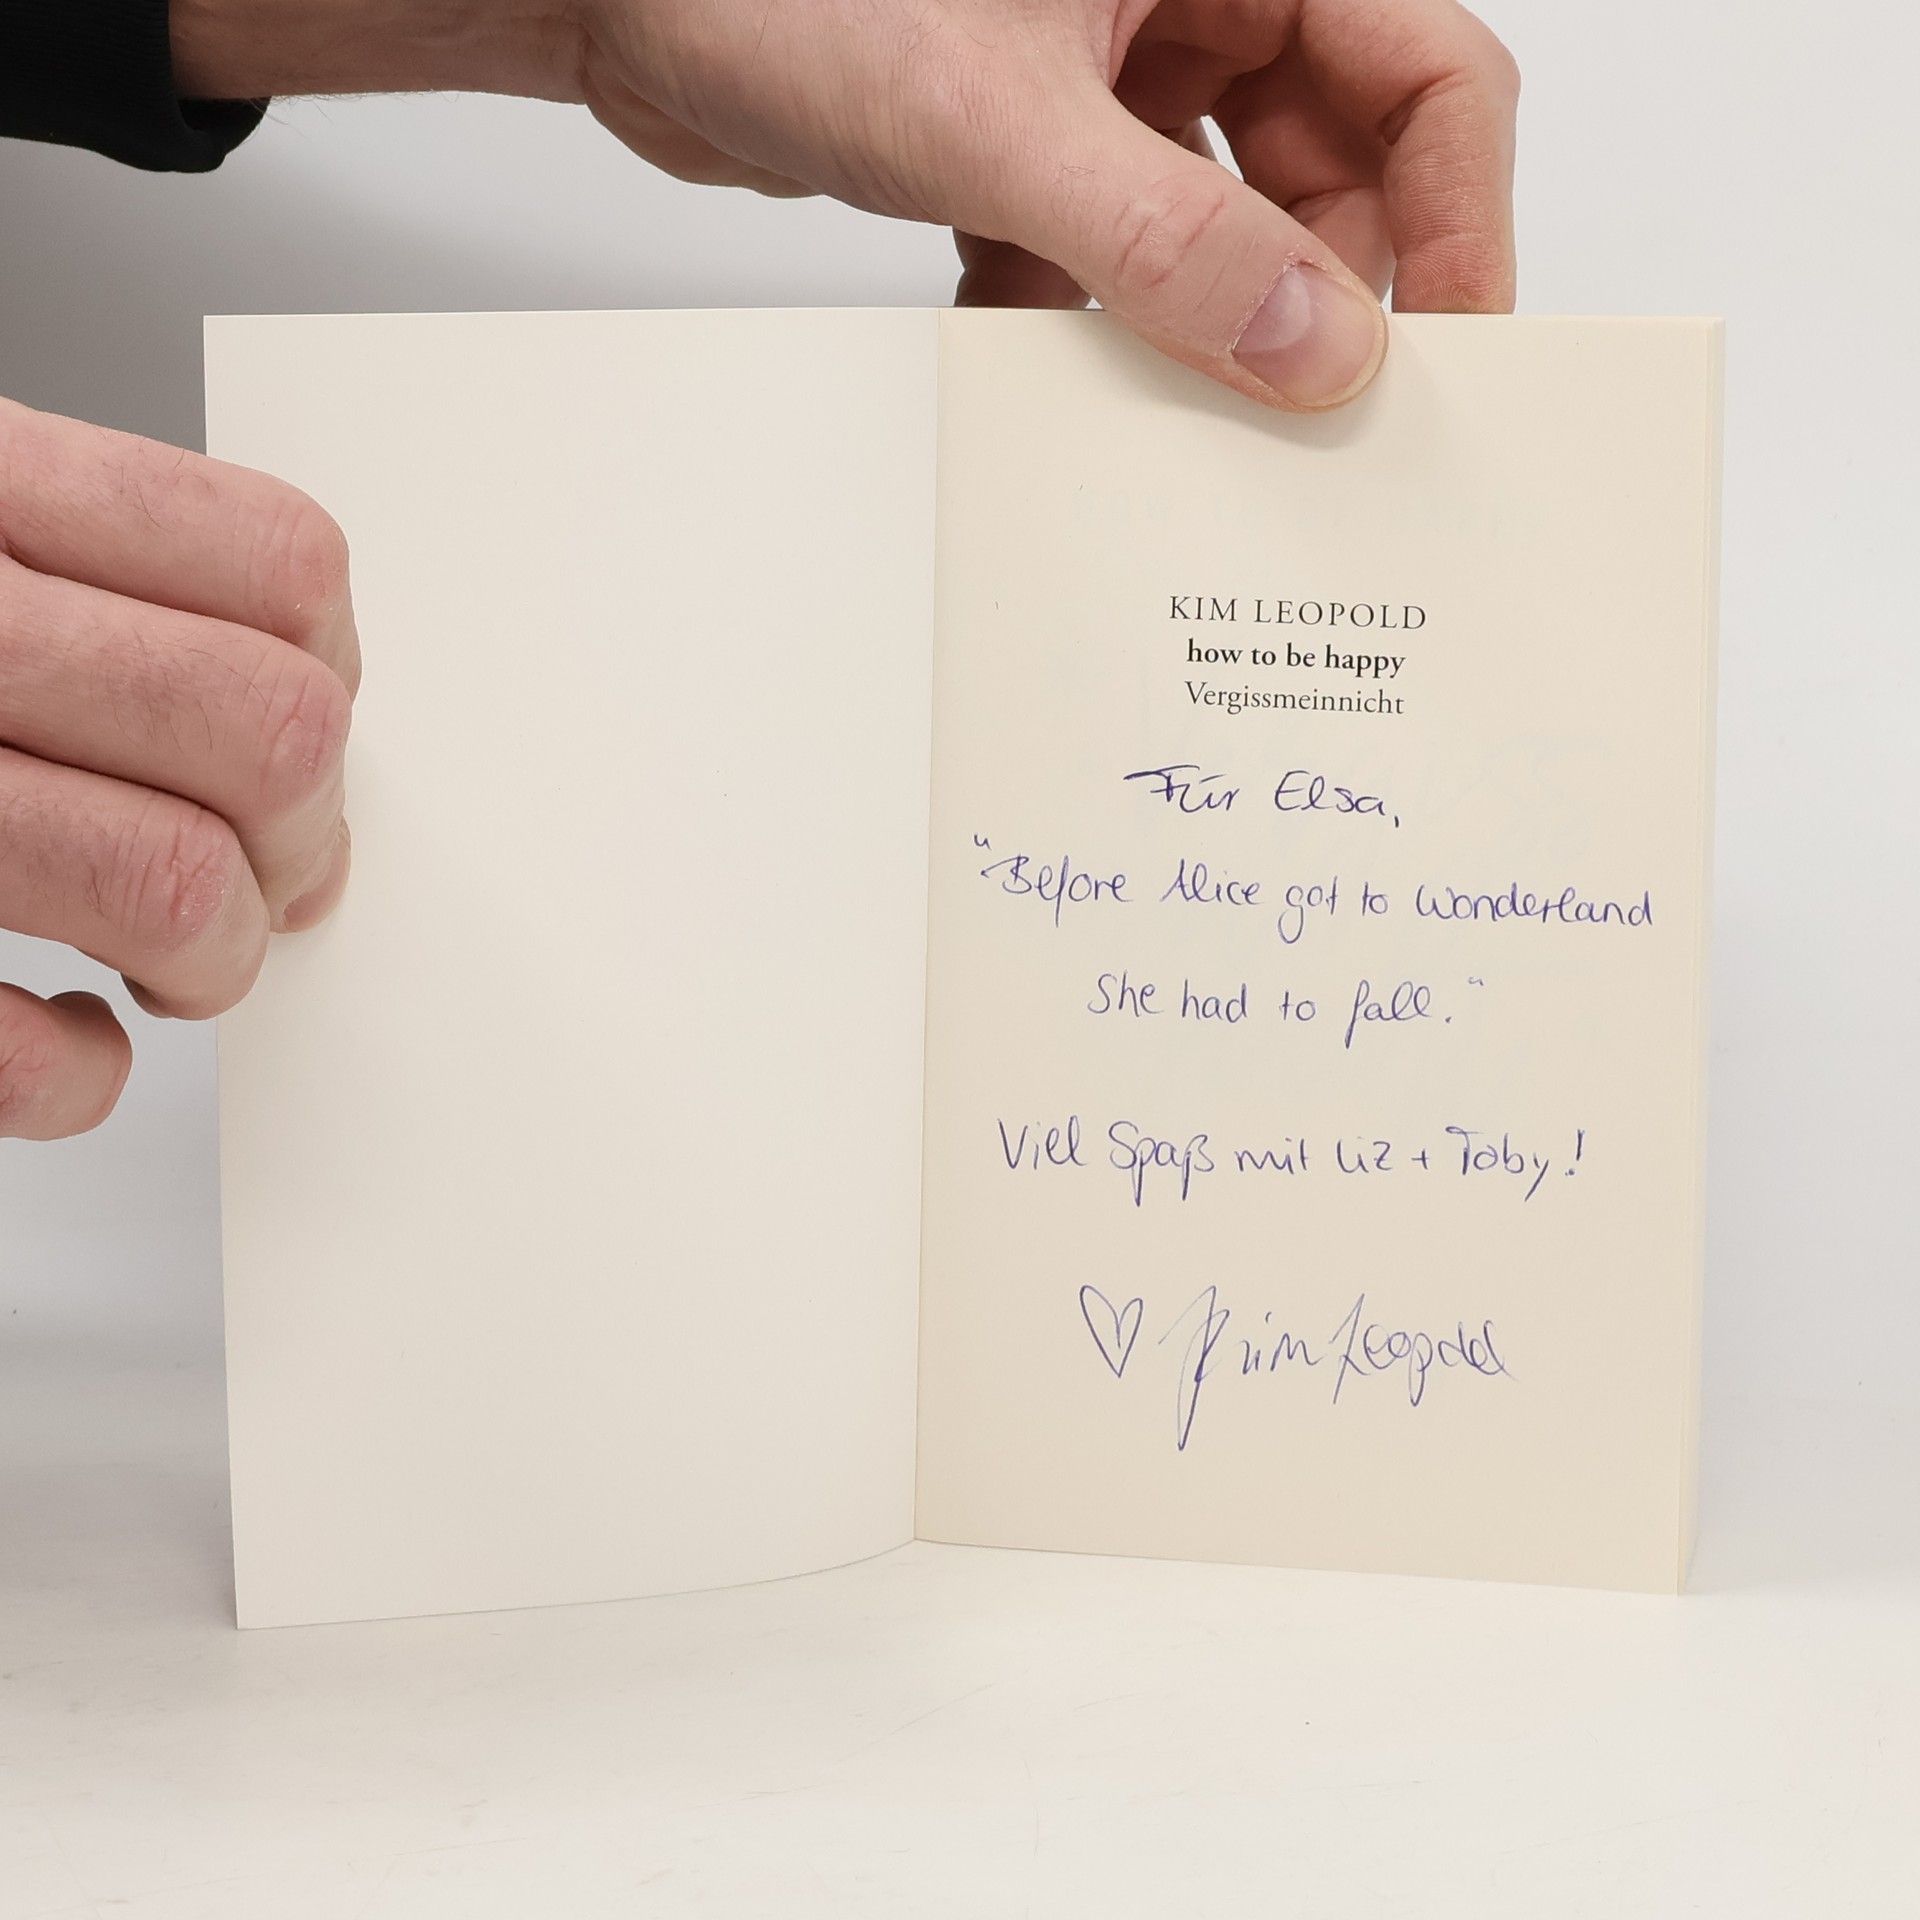 KIM LEOPOLD
how to be happy
Vergissmeinnicht
Für Elsa,
"Before Alice got to Wonderland
She had to fall."
Viel Spaß mit Liz + Toby!
♡ Kim Leopold